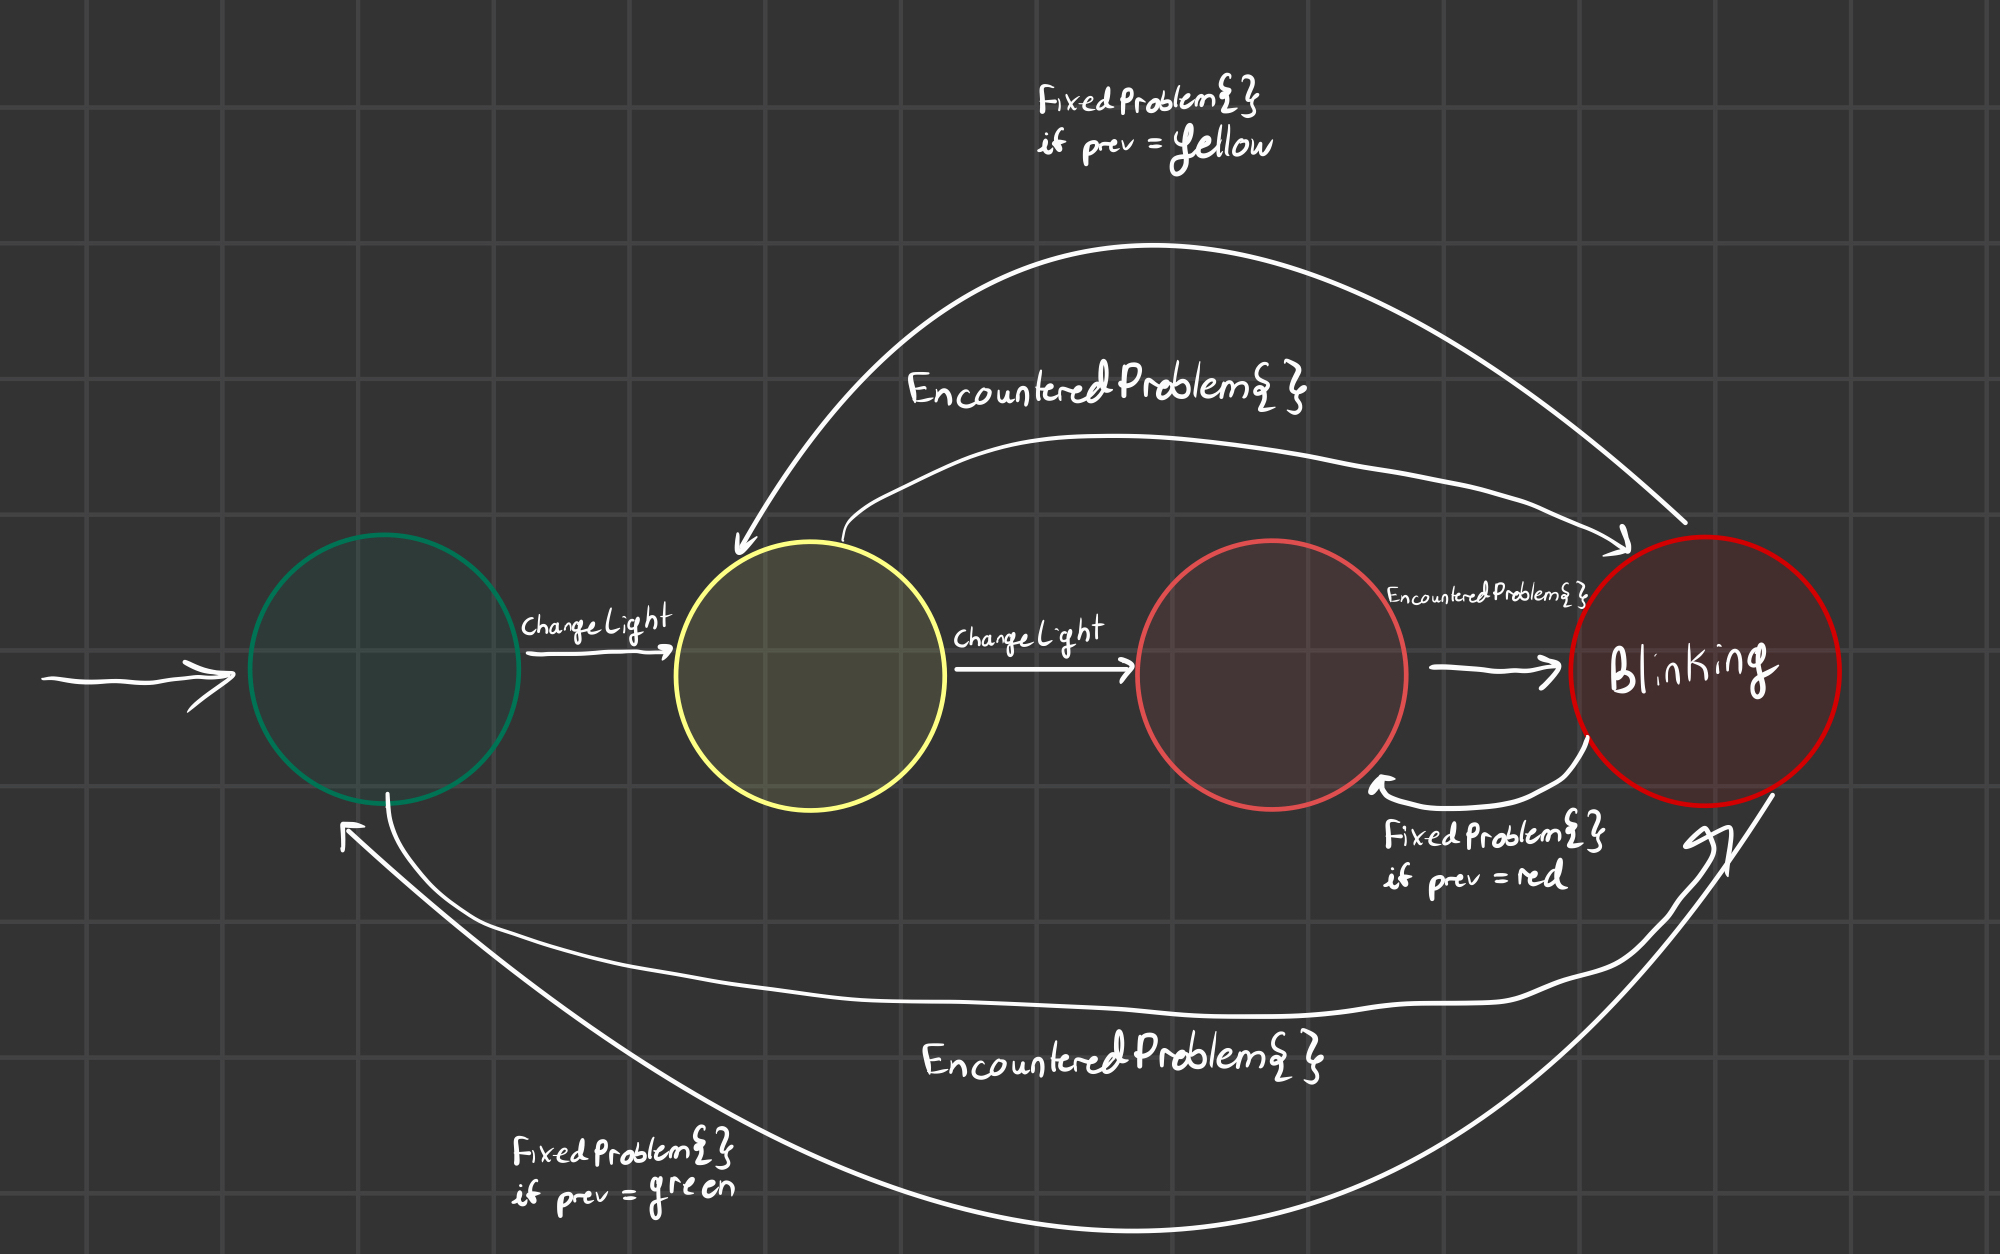 FixedProblem{}
if prev = yellow
EncounteredProblem{}
ChangeLight
ChangeLight
EncounteredProblem{}
Blinking
FixedProblem{}
if prev = red
EncounteredProblem{}
FixedProblem{}
if prev = green